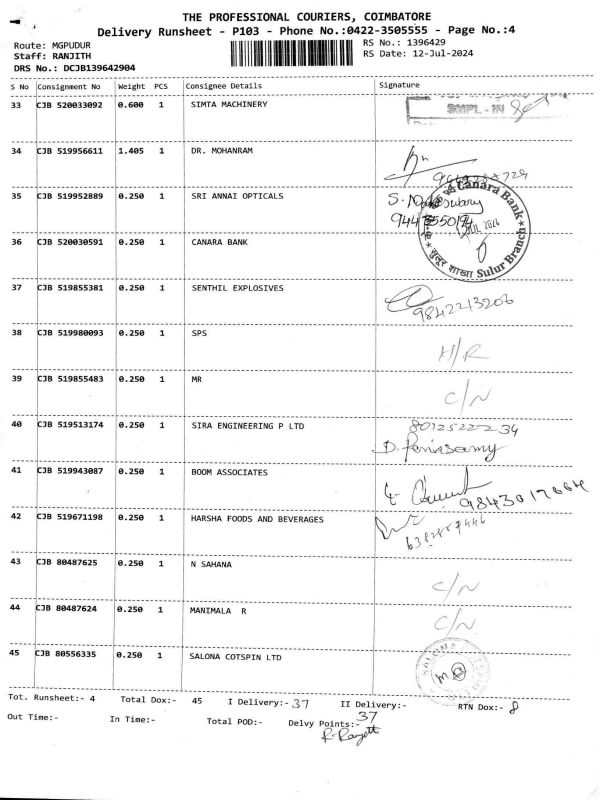 THE PROFESSIONAL COURIERS, COIMBATORE
Delivery Runsheet - P103 - Phone No.:0422-3505555 - Page No.:4
Route: MGPUDUR RS No.: 1396429
Staff: RANJITH RS Date: 12-Jul-2024
DRS No.: DCJB139642904
S No Consignment No Weight PCS Consignee Details Signature
33 CJB 520033092 0.600 1 SIMTA MACHINERY
34 CJB 519956611 1.405 1 DR. MOHANRAM
35 CJB 519952889 0.250 1 SRI ANNAI OPTICALS
36 CJB 520030591 0.250 1 CANARA BANK
Canara Bank
JUL 2024
सुलूर शाखा Sulur Branch
37 CJB 519855381 0.250 1 SENTHIL EXPLOSIVES
9842213206
38 CJB 519980093 0.250 1 SPS H/R
39 CJB 519855483 0.250 1 MR C/N
40 CJB 519513174 0.250 1 SIRA ENGINEERING P LTD
D. Periasamy
41 CJB 519943087 0.250 1 BOOM ASSOCIATES
42 CJB 519671198 0.250 1 HARSHA FOODS AND BEVERAGES
43 CJB 80487625 0.250 1 N SAHANA C/N
44 CJB 80487624 0.250 1 MANIMALA R C/N
45 CJB 80556335 0.250 1 SALONA COTSPIN LTD
Tot. Runsheet:- 4 Total Dox:- 45 I Delivery:- 37 II Delivery:- RTN Dox:- 8
Out Time:- In Time:- Total POD:- Delvy Points:- 37